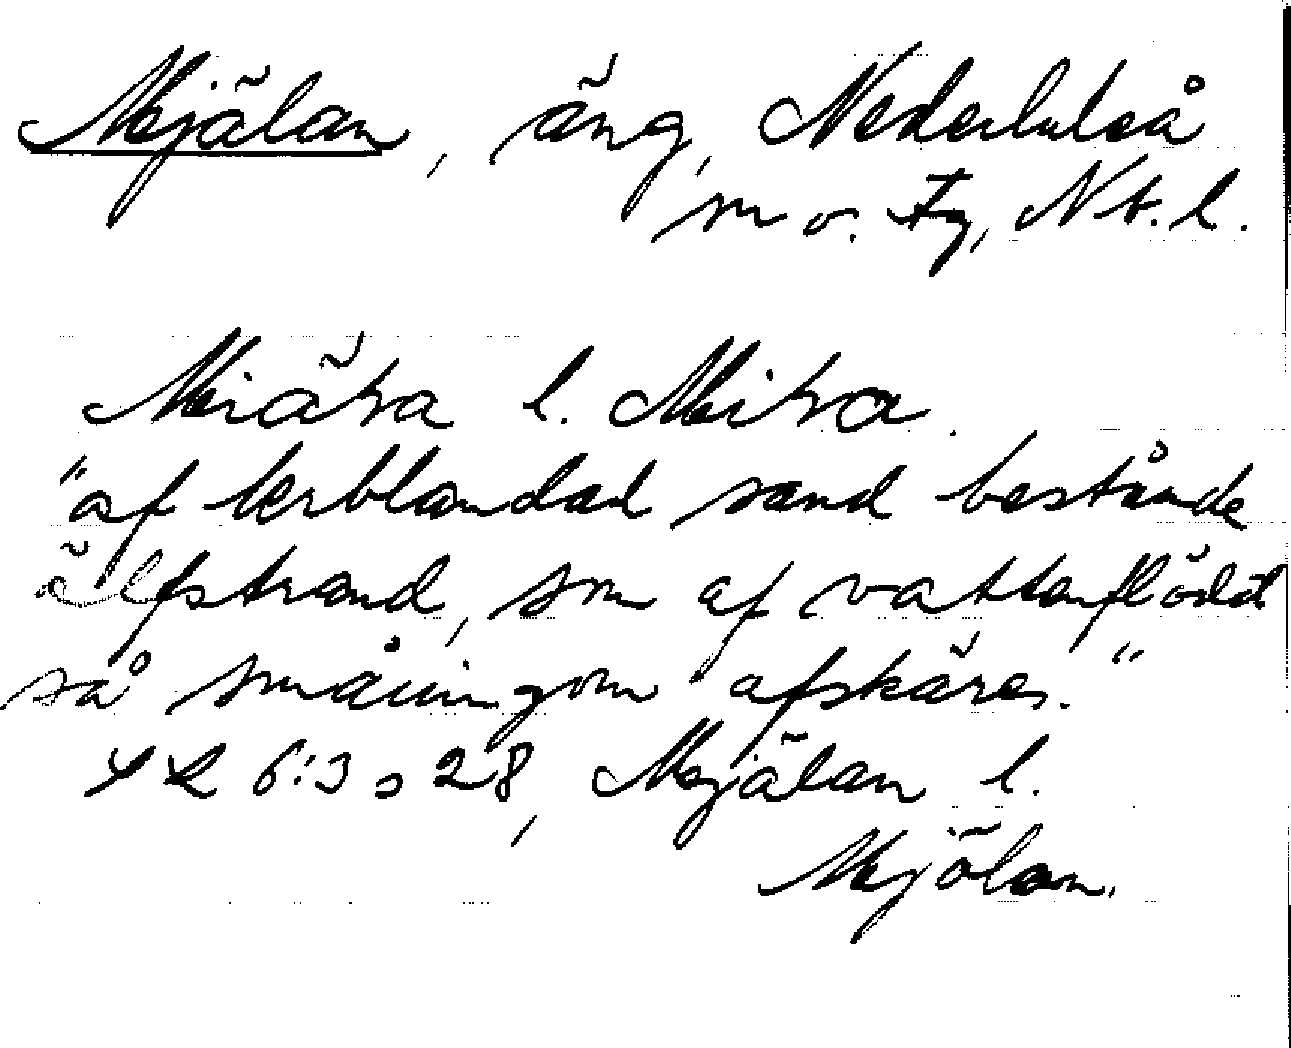 Mjälan, äng, Nederluleå
sn o. Tg, Nb. l.
Miäka l. Mika.
"af lerblandad sand bestånde
älfstrand, som af vattenflödet
så småningom afskäres."
6:3 s 28, Mjälan l.
Mjölan.